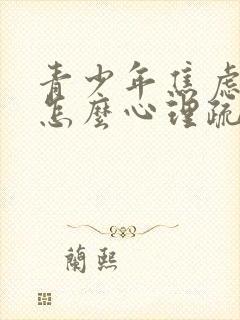 青少年焦虑
怎麼心理疏
蘭熙